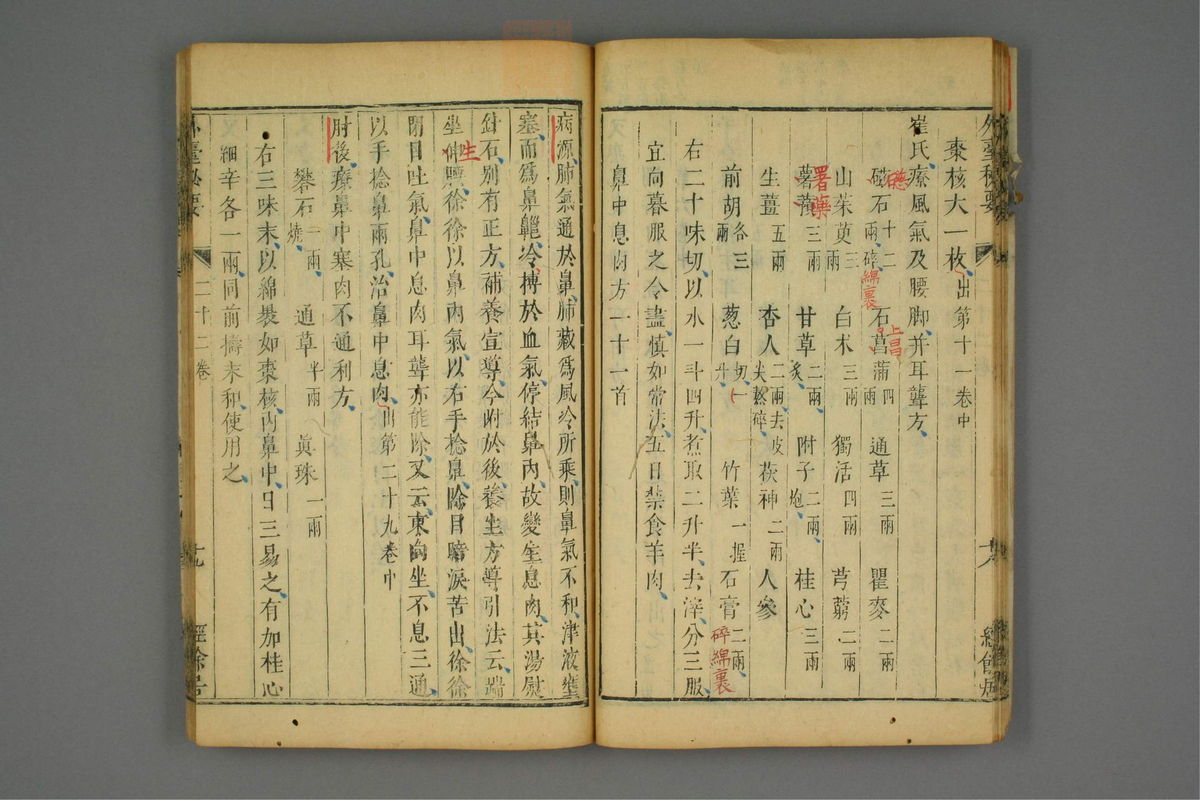 棗核大一枚出第十一卷中
崔氏療風氣及腰脚并耳聾方
磁石十二兩碎綿裹 石菖蒲四兩 通草三兩 瞿麥二兩
山茱萸三兩 白朮三兩 獨活四兩 芎藭二兩
薯蕷三兩 甘草二兩炙 附子二兩炮 桂心三兩
薯藥
生薑五兩 杏人二兩去皮尖熬碎 茯神二兩 人參
前胡各三兩 葱白切一升 竹葉一握 石膏二兩碎綿裹
右二十味切以水一斗四升煮取二升半去滓分三服
宜向暮服之令盡慎如常法五日禁食羊肉
鼻中息肉方一十一首
病源肺氣通於鼻肺藏爲風冷所乘則鼻氣不和津液壅
塞而爲鼻齆冷搏於血氣停結鼻內故變生息肉其湯熨
針石别有正方補養宣導今附於後養生方導引法云端
坐伸腰徐徐以鼻內氣以右手捻鼻除目暗淚苦出徐徐
生
閉目吐氣鼻中息肉耳聾亦能除又云東向坐不息三通
以手捻鼻兩孔治鼻中息肉出第二十九卷中
肘後療鼻中塞肉不通利方
礬石一兩燒 通草半兩 眞珠一兩
右三味末以綿裹如棗核內鼻中日三易之有加桂心
細辛各一兩同前擣末和使用之
外臺秘要 二十二卷 十九 經餘居